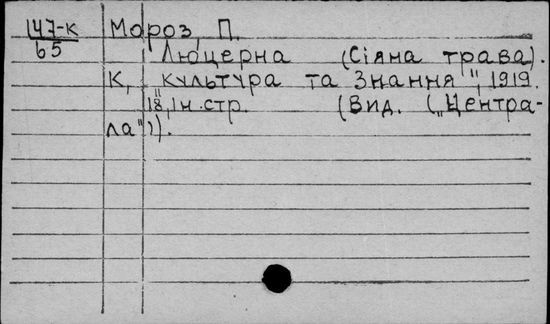 147-к
65
Мороз, П.
Люцерна (Сіяна трава).
К, „культура та Знання", 1919.
18, Iн.стр. (Вид. („Центра-
ла")).